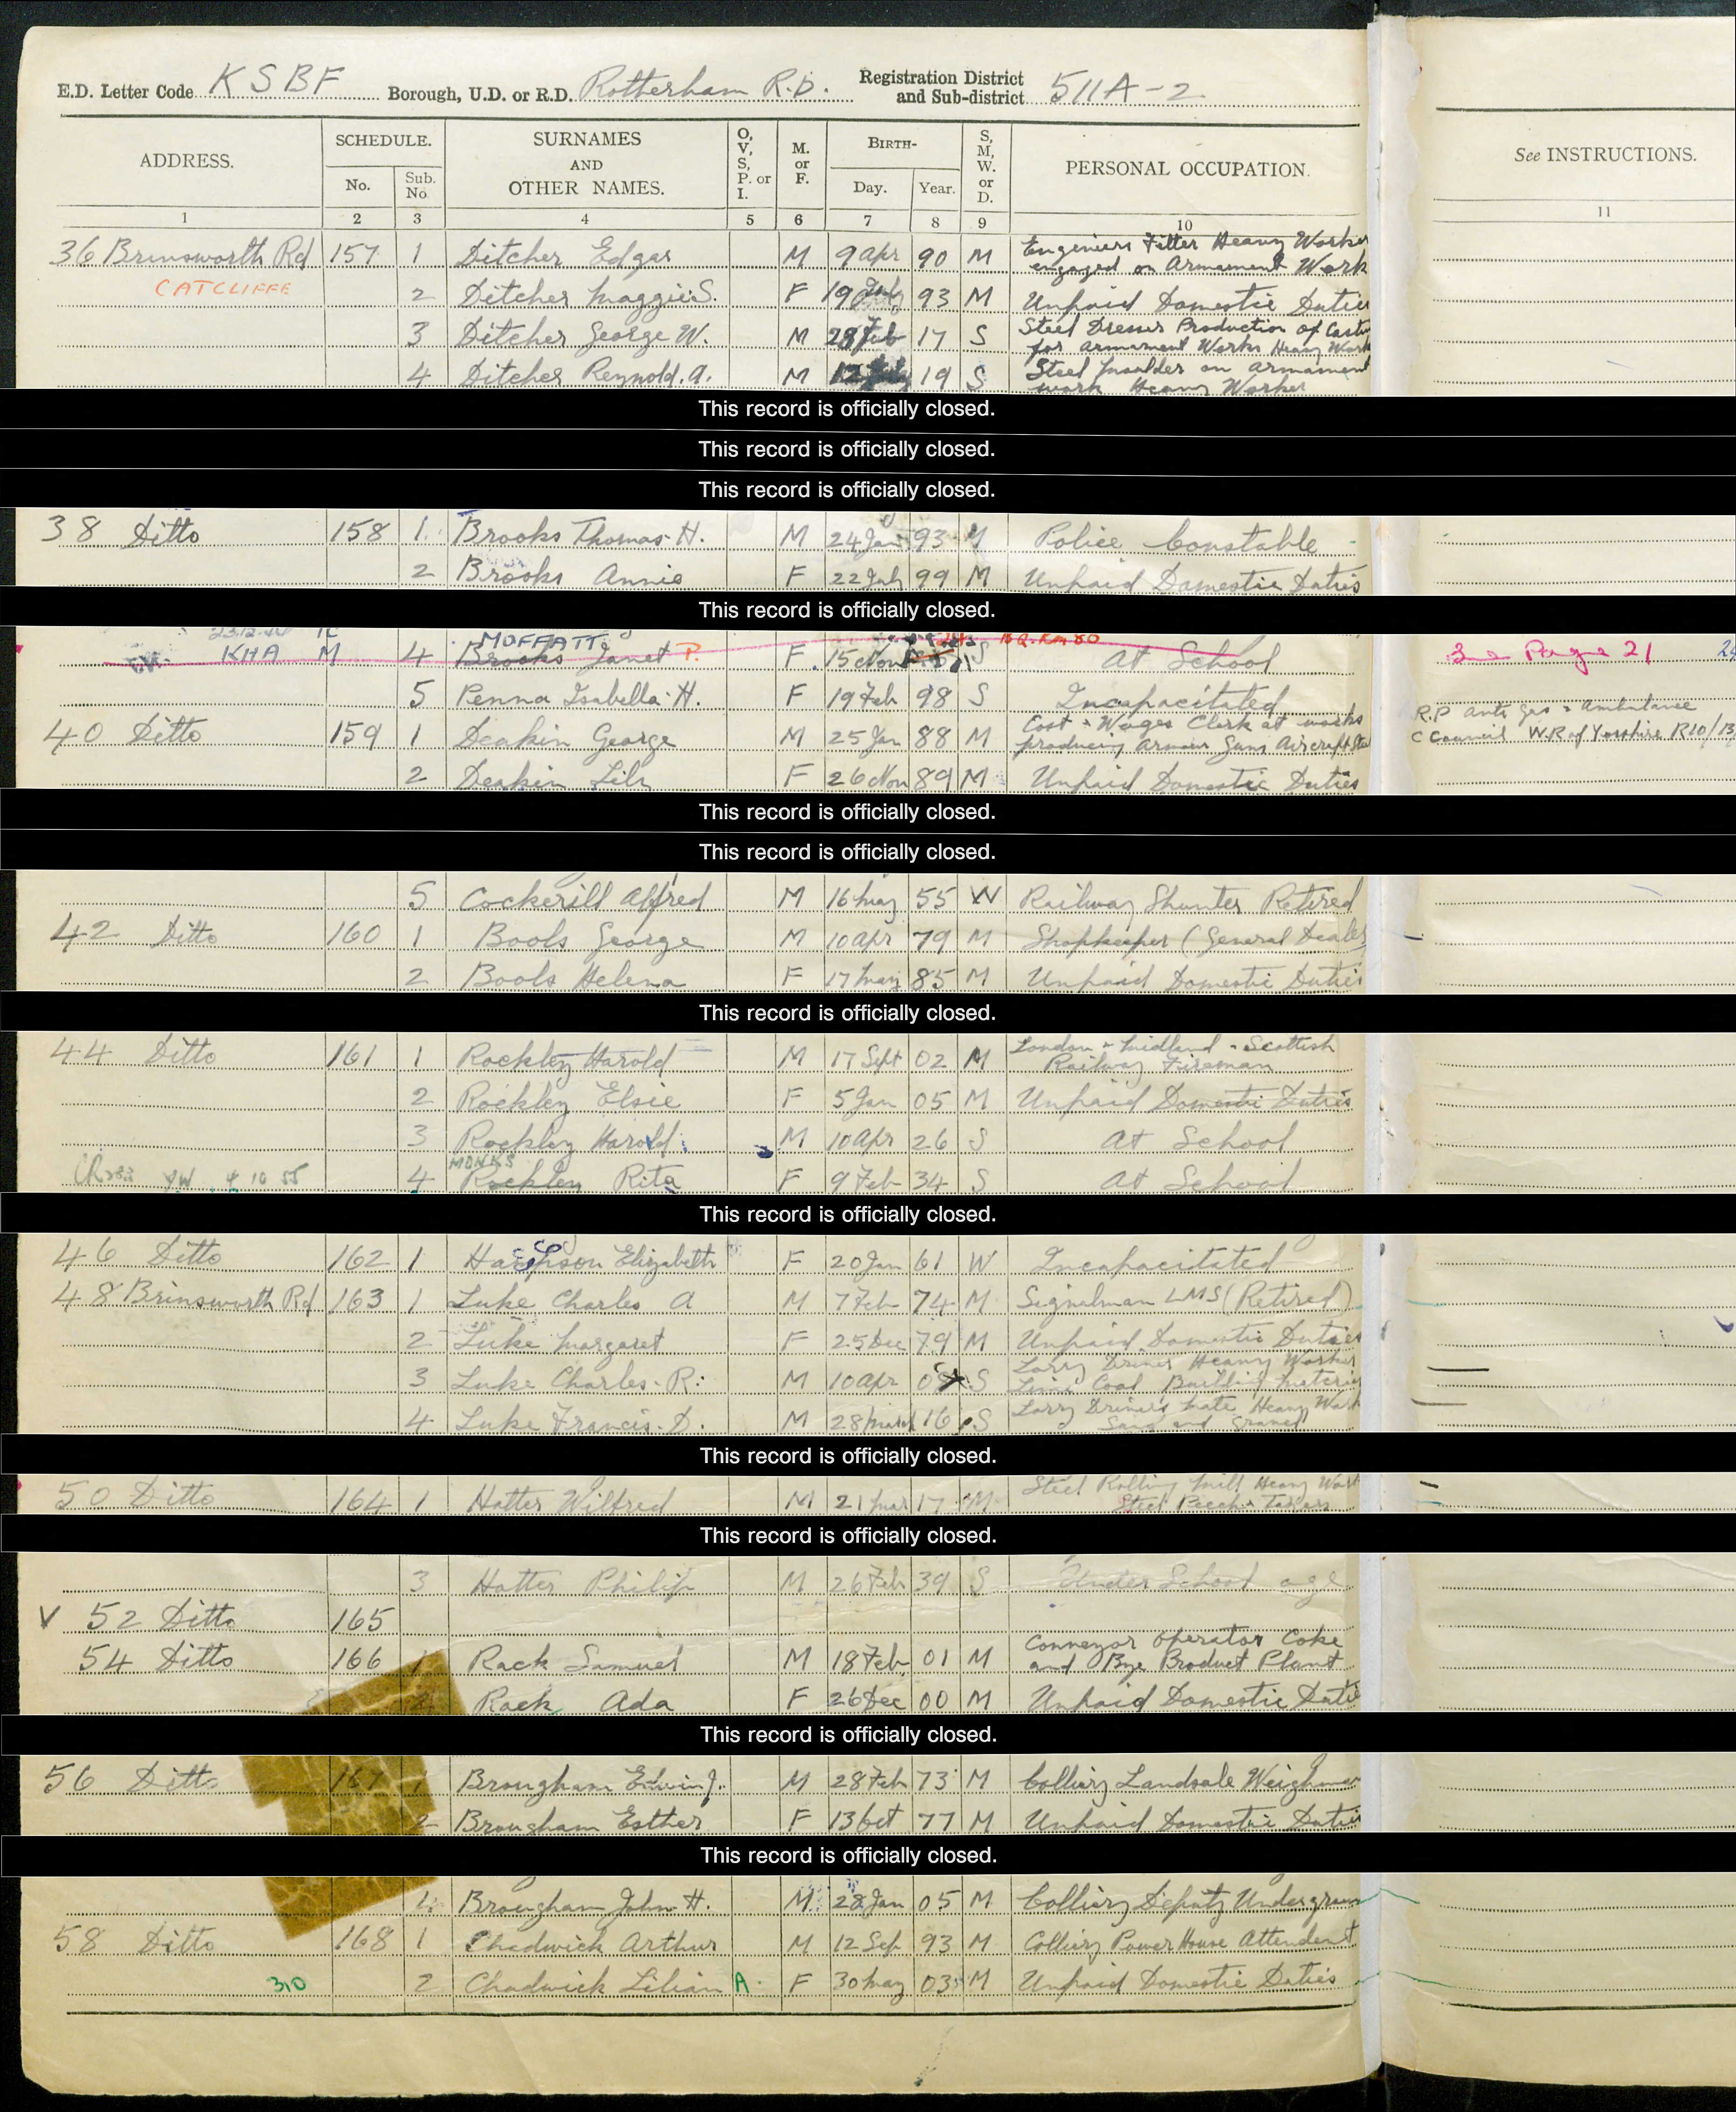 E.D. Letter Code KSBF Borough, U.D. or R.D. Rotherham R.D. Registration District and Sub-district 511A-2
ADDRESS. SCHEDULE. No. Sub. No. SURNAMES AND OTHER NAMES. O, V, S, P. or I. M. or F. BIRTH- Day. Year. S, M, W. or D. PERSONAL OCCUPATION. See INSTRUCTIONS.
1 2 3 4 5 6 7 8 9 10 11
36 Brinsworth Rd 157 1 Ditcher Edgar M 9 Apr 90 M Engeniers Fitter Heavy Worker engaged on Armament Work
CATCLIFFE 2 Ditcher Maggie S. F 19 93 M Unpaid Domestic Duties
3 Ditcher George W. M 28 Feb 17 S Steel Dresser Production of Casti for Armament Works Heavy Work
4 Ditcher Reynold. A. M 12 July 19 S Steel Moulder on Armament work Heavy Worker
This record is officially closed.
This record is officially closed.
This record is officially closed.
38 Ditto 158 1 Brooks Thomas H. M 24 Jan 93 M Police Constable
2 Brooks Annie F 22 July 99 M Unpaid Domestic Duties
This record is officially closed.
23.12.44
MOFFATT
KHA M 4 Brooks Janet P. F 15 Nov S At School See Page 21
5 Penna Isabella H. F 19 Feb 98 S Incapacitated
40 Ditto 159 1 Deakin George M 25 Jan 88 M Cost & Wages Clerk at works producing Armour Guns Aircraft Ste R.P Anti Gas & Ambulance C Council W.R of Yorkshire R10/13
2 Deakin Lily F 26 Nov 89 M Unpaid Domestic Duties
This record is officially closed.
This record is officially closed.
5 Cockerill Alfred M 16 May 55 W Railway Shunter Retired
42 Ditto 160 1 Bools George M 10 Apr 79 M Shopkeeper (General Dealer
2 Bools Helena F 17 May 85 M Unpaid Domestic Duties
This record is officially closed.
44 Ditto 161 1 Rockley Harold M 17 Sept 02 M London & Midland & Scottish Railway Fireman
2 Rockley Elsie F 5 Jan 05 M Unpaid Domestic Duties
3 Rockley Harold M 10 Apr 26 S At School
MONKS
4 10 55 4 Rockley Rita F 9 Feb 34 S At School
This record is officially closed.
46 Ditto 162 1 Elizabeth F 20 Jan 61 W Incapacitated
48 Brinsworth Rd 163 1 Luke Charles A M 7 Feb 74 M Signalman LMS (Retired)
2 Luke Margaret F 25 Dec 79 M Unpaid Domestic Duties
3 Luke Charles R. M 10 Apr S Lorry Driver Heavy Worker Lime Coal Building Materia
4 Luke Francis. D. M 28 March 16 S Lorry Drivers Mate Heavy Work Sand and Gravel
This record is officially closed.
50 Ditto 164 1 Hatter Wilfred M 21 Mar 17 M Steel Rolling Mill Heavy Work Steel
This record is officially closed.
3 Hatter Philip M 26 Feb 39 S Under School age
V 52 Ditto 165
54 Ditto 166 1 Rack Samuel M 18 Feb 01 M Conveyor Operator Coke and Bye Product Plant
2 Rack Ada F 26 Dec 00 M Unpaid Domestic Dutie
This record is officially closed.
56 Ditto 167 1 Brougham Edwin J. M 28 Feb 73 M Colliery Landsale Weighman
2 Brougham Esther F 13 Oct 77 M Unpaid Domestic Duties
This record is officially closed.
4 Brougham John H. M 28 Jan 05 M Colliery Deputy Undergroun
58 Ditto 168 1 Chadwick Arthur M 12 Sep 93 M Colliery Power House Attendent
310 2 Chadwick Lilian A. F 30 May 03 M Unpaid Domestic Duties